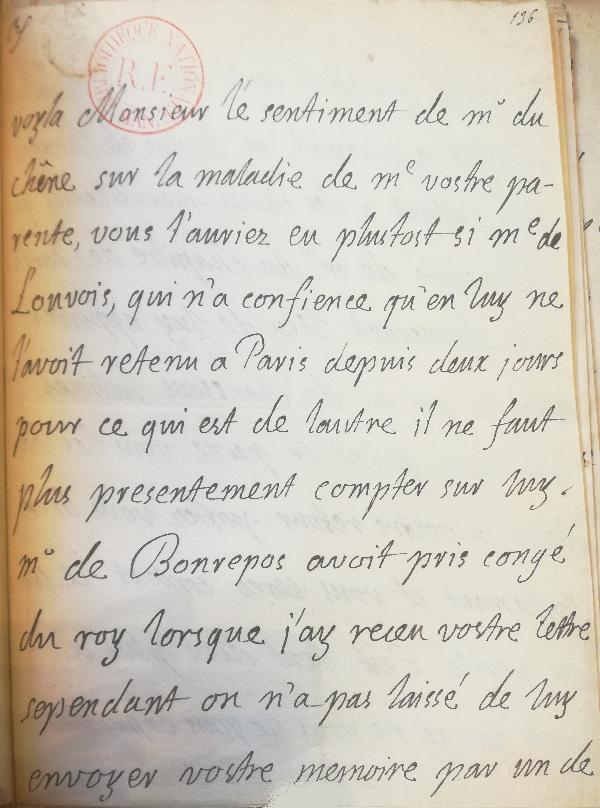 136
BIBLIOTHEQUE NATIONALE
R.F.
voyla Monsieur le sentiment de mr du
chêne sur la maladie de me vostre pa-
rente, vous l'auriez eu plustost si me de
Louvois, qui n'a confience qu'en luy ne
l'avoit retenu a Paris depuis deux jours
pour ce qui est de lautre il ne faut
plus presentement compter sur luy.
mr de Bonrepos avoit pris congé
du roy lorsque j'ay receu vostre lettre
sependant on n'a pas laissé de luy
envoyer vostre memoire par un de